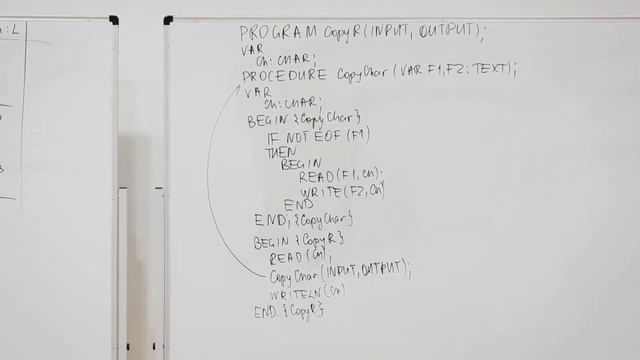 n:L
PROGRAM CopyR(INPUT, OUTPUT);
VAR
Ch: CHAR;
PROCEDURE CopyChar (VAR F1,F2: TEXT);
VAR
Ch: CHAR;
BEGIN {CopyChar}
IF NOT EOF (F1)
THEN
BEGIN
READ(F1,Ch);
WRITE(F2,Ch)
END
END; {CopyChar}
BEGIN {CopyR}
READ(Ch);
CopyChar(INPUT,OUTPUT);
WRITELN(Ch)
END. {CopyR}